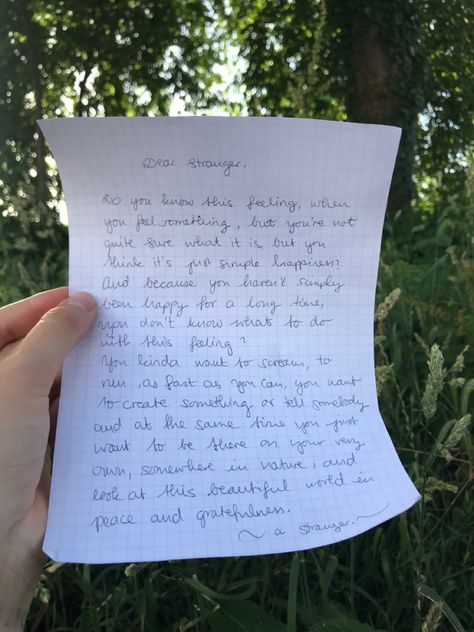 Dear stranger.
Do you know this feeling, when
you feel something, but you're not
quite sure what it is, but you
think it's just simple happiness?
And because you haven't simply
been happy for a long time,
you don't know what to do
with this feeling?
You kinda want to scream, to
run, as fast as you can, you want
to create something or tell somebody
and at the same time you just
want to be there on your very
own, somewhere in nature, and
look at this beautiful world in
peace and gratefulness.
~ a stranger. ~